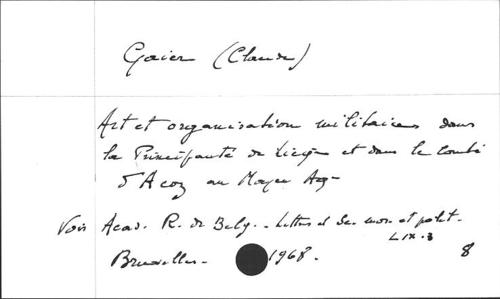 Gaier (Claude)
Art et organisation militaires dans
la Principauté de Liège et dans le Comté
de Looz au Moyen Age
Voir Acad. R. de Belg. - Lettres et Sc. mor. et polit.
LIX. 3
Bruxelles - 1968.
8